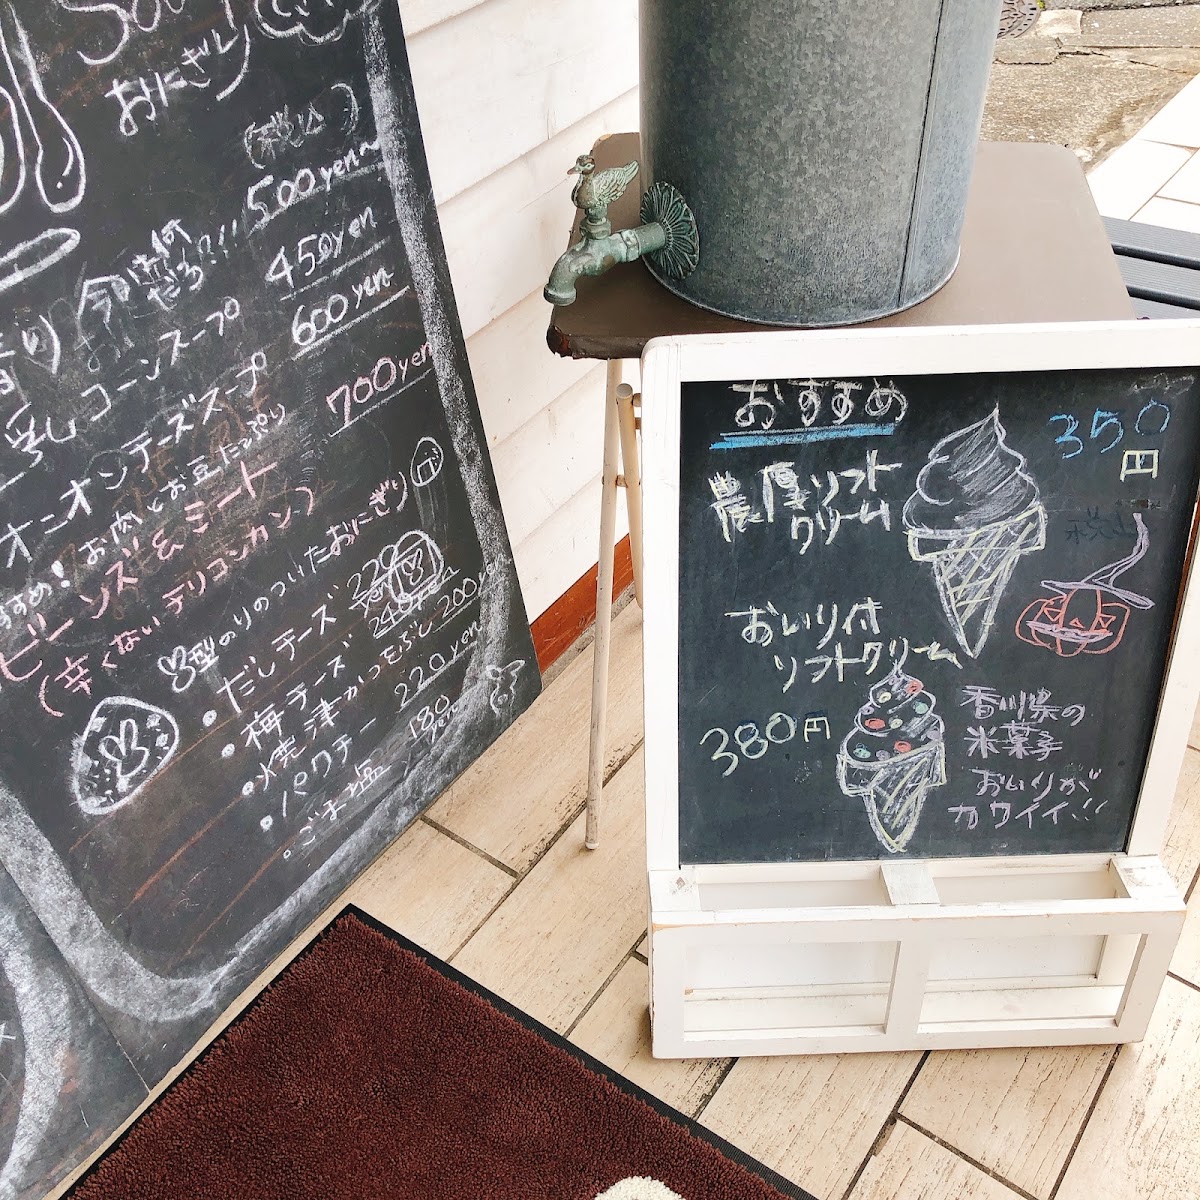 Sou
おにぎり
(税込)
今週は何
だろ?!!
500yen〜
乳コーンスープ 450yen
オニオンチーズスープ 600yen
お肉とお豆たっぷり
すすめ!
ビーンズ&ミート 700yen
(辛くないチリコンカン)
型ののりのついたおにぎり
・だしチーズ 220
・梅チーズ 240yen
・焼津かつおぶし 200
・パクチー 220yen
・ごま塩 180yen
おすすめ
350円
税込
濃厚ソフト
クリーム
おいり付
ソフトクリーム
380円
香川県の
米菓子
おいりが
カワイイ!!